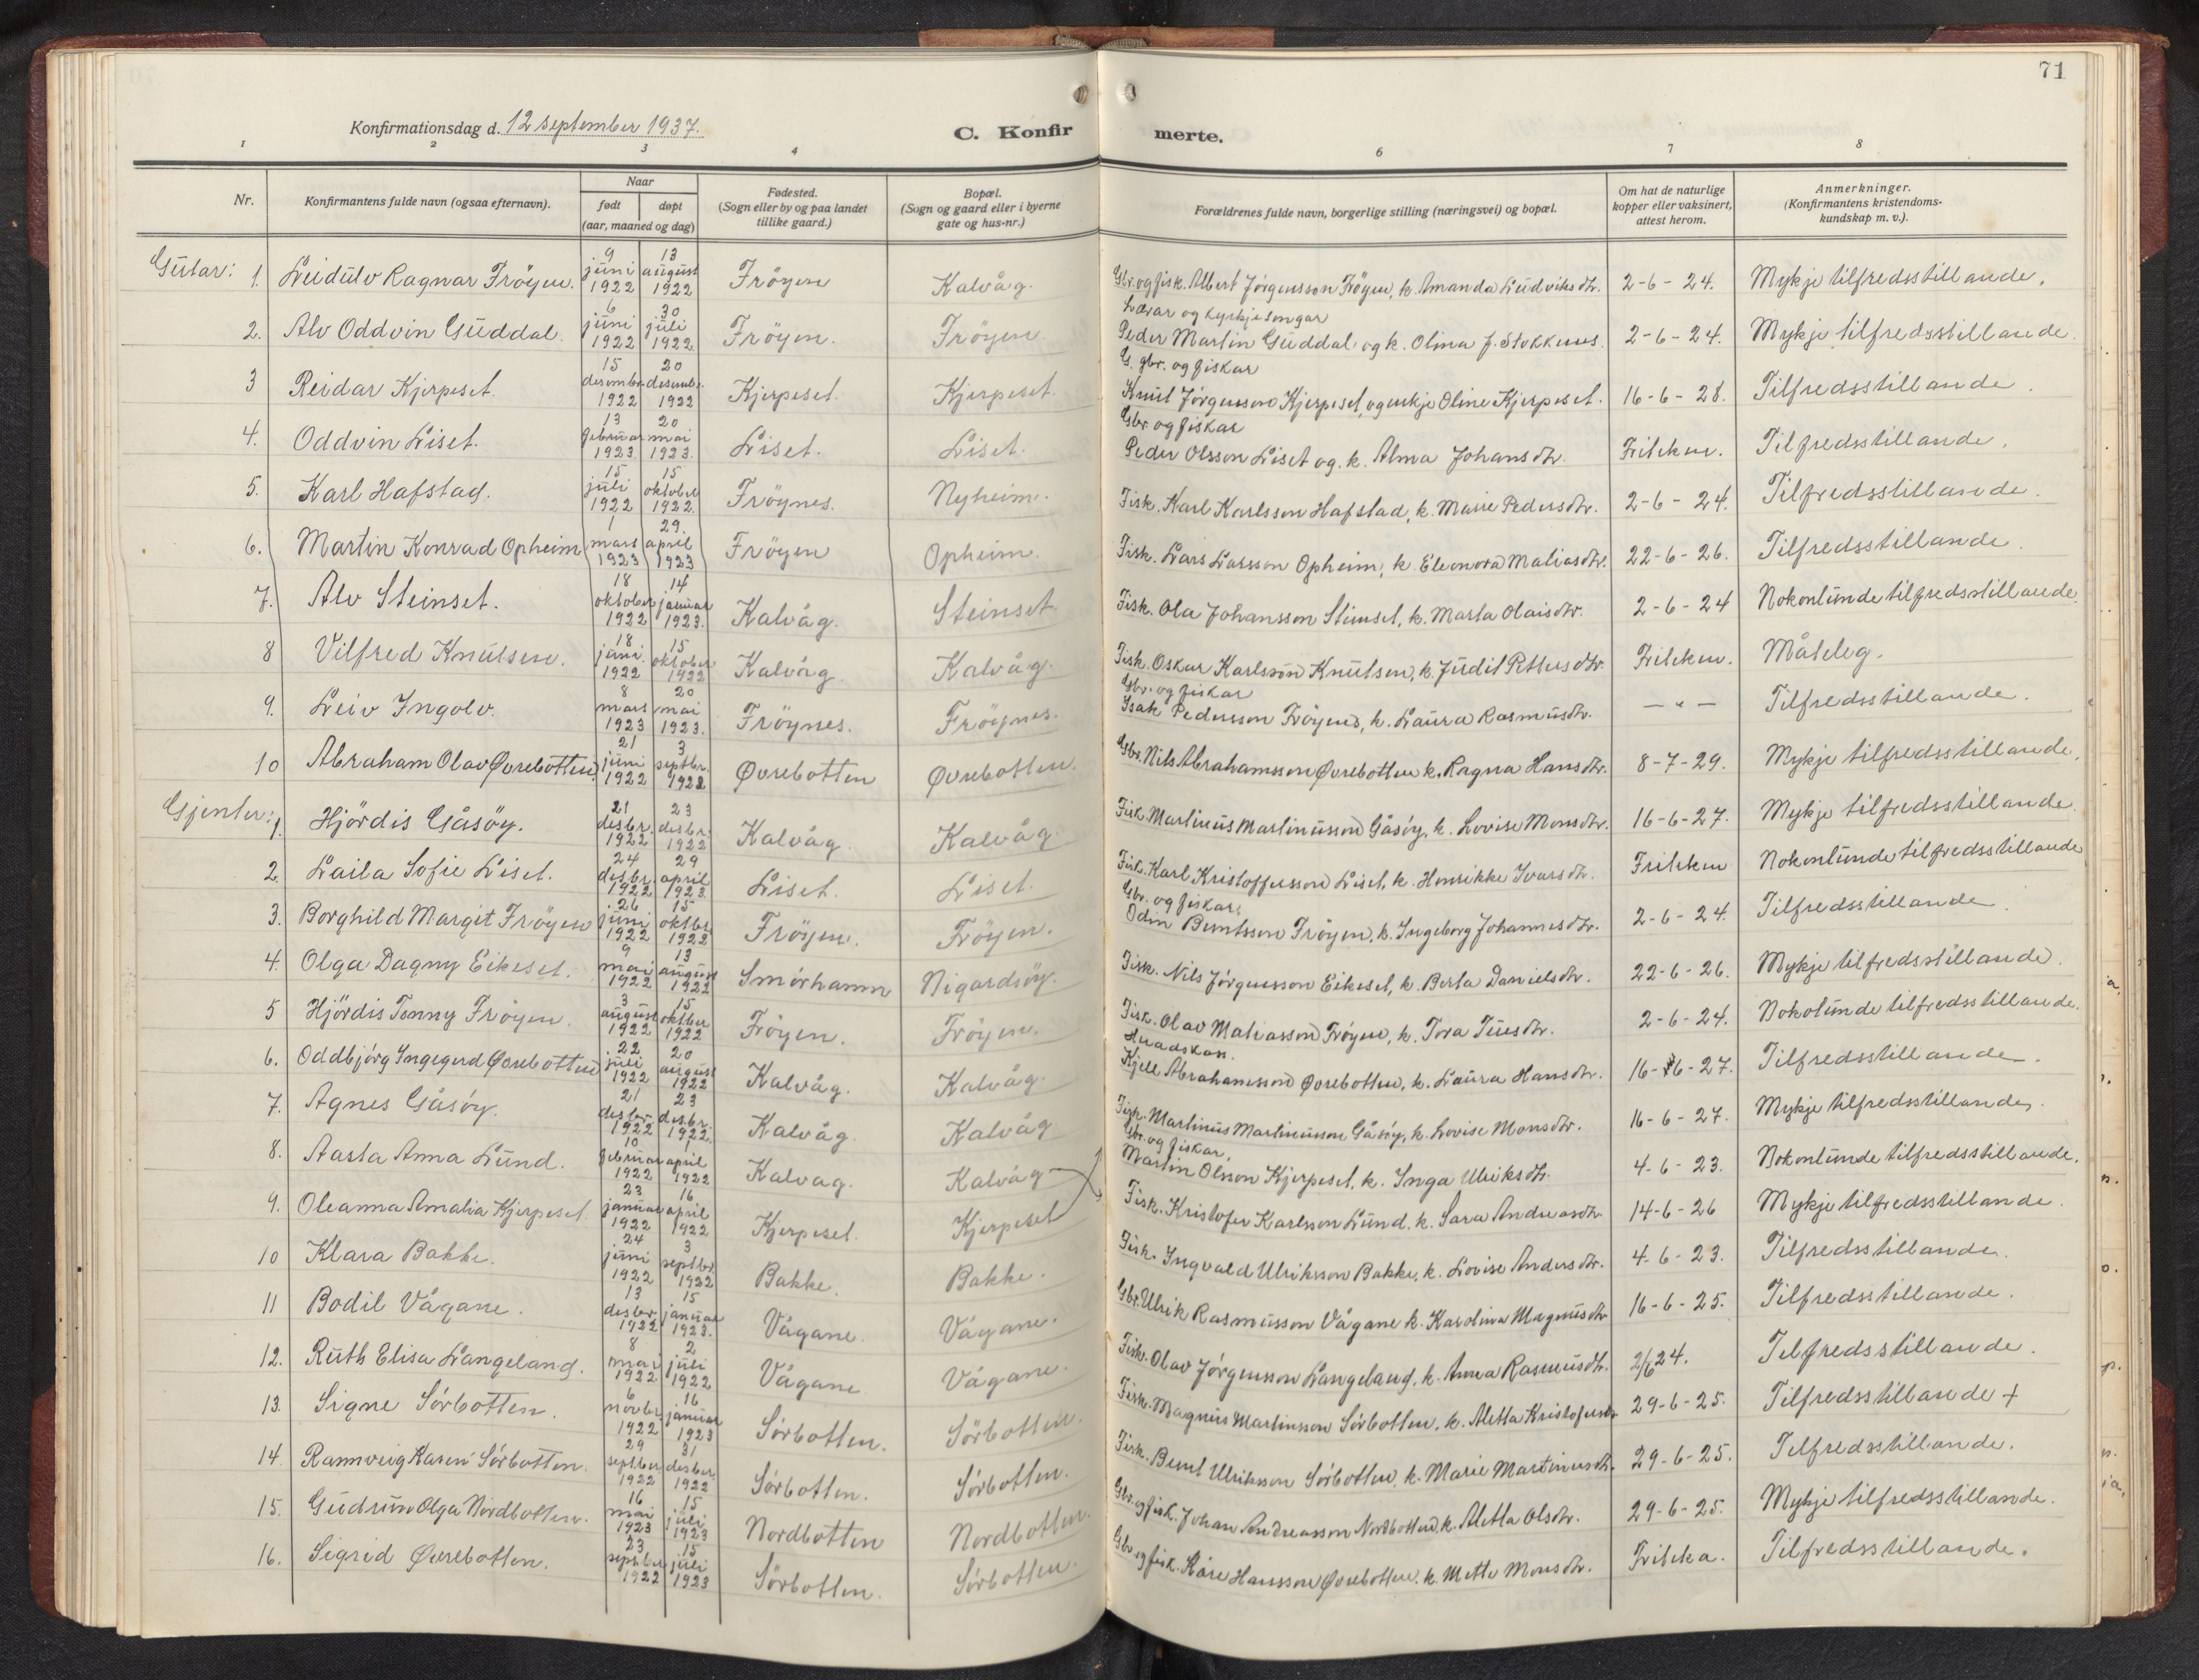 71
Konfirmationsdag d. 12 september 1937.
C. Konfirmerte.
1 2 3 4 6 7 8
Nr. | Konfirmantens fulde navn (ogsaa efternavn). | Naar født | døpt (aar, maaned og dag) | Fødested. (Sogn eller by og paa landet tillike gaard.) | Bopæl. (Sogn og gaard eller i byerne gate og hus-nr.) | Forældrenes fulde navn, borgerlige stilling (næringsvei) og bopæl. | Om hat de naturlige kopper eller vaksinert, attest herom. | Anmerkninger. (Konfirmantens kristendomskundskap m. v.).
Gutar:
1. Leidulv Ragnar Fröyen. | 9 juni 1922 | 13 august 1922 | Fröyen | Kalvåg. | Gbr. og fisk. Albert Jørgensson Fröyen, k. Amanda Ludviksdtr. | 2-6-24. | Mykje tilfredsstillande.
2. Alv Oddvin Guddal. | 6 juni 1922 | 30 juli 1922. | Fröyen. | Fröyen | Lærar og kyrkjesongar Peder Martin Guddal og k. Olina f. Stokkenes. | 2-6-24. | Mykje tilfredsstillande.
3 Reidar Kjerpeset. | 15 desember 1922 | 20 desember 1922 | Kjerpeset. | Kjerpeset. | G. gbr. og fiskar Knut Jørgensson Kjerpeset, og enkje Oline Kjerpeset. | 16-6-28. | Tilfredsstillande.
4. Oddvin Liset. | 13 februar 1923. | 20 mai 1923. | Liset. | Liset. | Gbr. og fiskar Peder Olsson Liset og k. Alma Johansdtr. | Friteken. | Tilfredsstillande.
5. Karl Hafstad. | 15 juli 1922 | 15 oktober 1922. | Fröynes. | Nyheim. | Fisk. Karl Karlsson Hafstad, k. Marie Pedersdtr. | 2-6-24. | Tilfredsstillande.
6. Martin Konrad Opheim | 1 mars 1923 | 29. april 1923 | Fröyen | Opheim. | Fisk. Lars Larsson Opheim, k. Eleonora Matiasdtr. | 22-6-26. | Tilfredsstillande.
7. Alv Steinset. | 18 oktober 1922 | 14 januar 1923. | Kalvåg. | Steinset | Fisk. Ola Johansson Steinset, k. Marta Olaisdtr. | 2-6-24 | Nokonlunde tilfredsstillande.
8 Vilfred Knutsen. | 18 juni 1922 | 15 oktober 1922 | Kalvåg. | Kalvåg. | Fisk. Oskar Karlsson Knutsen, k. Judit Pettersdtr. | Friteken. | Måteleg.
9. Leiv Ingolv. | 8 mars 1923 | 20 mai 1923. | Fröynes. | Fröynes. | Gbr. og fiskar Isak Pedersson Fröynes, k. Laura Rasmusdtr. | — " — | Tilfredsstillande.
10 Abraham Olav Øvrebotten | 21 juni 1922 | 3 septbr. 1922 | Øvrebotten | Øvrebotten. | Gbr. Nils Abrahamsson Øvrebotten k. Ragna Hansdtr. | 8-7-29. | Mykje tilfredsstillande.
Gjenter:
1. Hjördis Gåsöy. | 21 desbr. 1922 | 23 desbr. 1922 | Kalvåg. | Kalvåg. | Fisk Martinus Martinusson Gåsöy, k. Lovise Monsdtr. | 16-6-27. | Mykje tilfredsstillande
2. Laila Sofie Liset. | 24 desbr. 1922 | 29 april 1923. | Liset. | Liset. | Fisk. Karl Kristoffersson Liset, k. Henrikke Ivarsdtr. | Friteken | Nokonlunde tilfredsstillande
3. Borghild Margit Fröyen | 26 juni 1922 | 15 oktbr. 1922 | Fröyen. | Fröyen. | Gbr. og fiskar. Odin Berntsson Fröyen, k. Ingeborg Johannesdtr. | 2-6-24. | Tilfredsstillande
4. Olga Dagny Eikeset. | 9 mai 1922 | 13 august 1922 | Smörhamn | Nigardsöy. | Fisk. Nils Jörgensson Eikeset, k. Berta Danielsdtr. | 22-6-26. | Mykje tilfredsstillande.
5 Hjördis Tenny Fröyen. | 3 august 1922 | 15 oktber 1922 | Fröyen. | Fröyen. | Fisk. Olav Matiasson Fröyen, k. Tora Tuesdtr. | 2-6-24. | Nokolunde tilfredsstillande.
6. Oddbjörg Ingegerd Øvrebotten | 22 juli 1922 | 20 august 1922 | Kalvåg. | Kalvåg. | Kjell Abrahamsson Øvrebotten, k. Laura Hansdtr. | 16-6-27. | Tilfredsstillande.
7. Agnes Gåsöy. | 21 desbr. 1922 | 23 desbr. 1922. | Kalvåg. | Kalvåg | Fisk. Martinus Martinusson Gåsöy, k. Lovise Monsdtr. | 16-6-27. | Mykje tilfredsstillande.
8. Aasta Anna Lund. | 10 februar 1922 | april 1922 | Kalvag. | Kalvåg | Gbr. og fiskar. Martin Olsson Kjerpeset, k. Inga Ulriksdtr. | 4-6-23. | Nokonlunde tilfredsstillande.
9. Oleanna Amalia Kjerpeset | 23 januar 1922 | 16 april 1922 | Kjerpeset. | Kjerpeset | Fisk. Kristofer Karlsson Lund. k. Sara Andreasdtr. | 14-6-26 | Mykje tilfredsstillande.
10 Klara Bakke. | 24 juni 1922 | 3 septbr. 1922 | Bakke. | Bakke. | Fisk. Ingvald Ulriksson Bakke, k. Lovise Andersdtr. | 4-6-23. | Tilfredsstillande.
11 Bodil Vågane. | 13 desbr. 1922 | 15 januar 1923. | Vågane. | Vågane. | Gbr. Ulrik Rasmusson Vågane k. Karolina Magnusdtr | 16-6-25. | Tilfredsstillande.
12. Ruth Elisa Langeland. | 8 mai 1922 | 2 juli 1922 | Vågane | Vågane. | Fisk. Olav Jörgensson Langeland, k. Anna Rasmusdtr. | 2/6 24. | Tilfredsstillande.
13. Signe Sörbotten. | 6 novbr. 1922 | 16 januar 1923 | Sörbotten. | Sörbotten. | Fisk. Magnus Martinsson Sörbotten, k. Aletta Kristofersdtr. | 29-6-25. | Tilfredsstillande +
14. Rannveig Karen Sörbotten. | 29 septber. 1922 | 31 desber. 1922 | Sörbotten. | Sörbotten. | Fisk. Bernt Ulriksson Sörbotten, k. Marie Martinusdtr. | 29-6-25. | Tilfredsstillande.
15. Gudrun Olga Nordbotten. | 16 mai 1923 | 15 juli 1923 | Nordbotten | Nordbotten. | Gbr. og fisk. Johan Andreasson Nordbotten, k. Aletta Olsdtr. | 29-6-25. | Mykje tilfredsstillande.
16. Sigrid Øvrebotten. | 23 septber 1922 | 15 juli 1923 | Sörbotten. | Sörbotten. | Gbr. og fisk. Kåre Hansson Øvrebotten, k. Mette Monsdtr. | Friteka. | Tilfredsstillande.